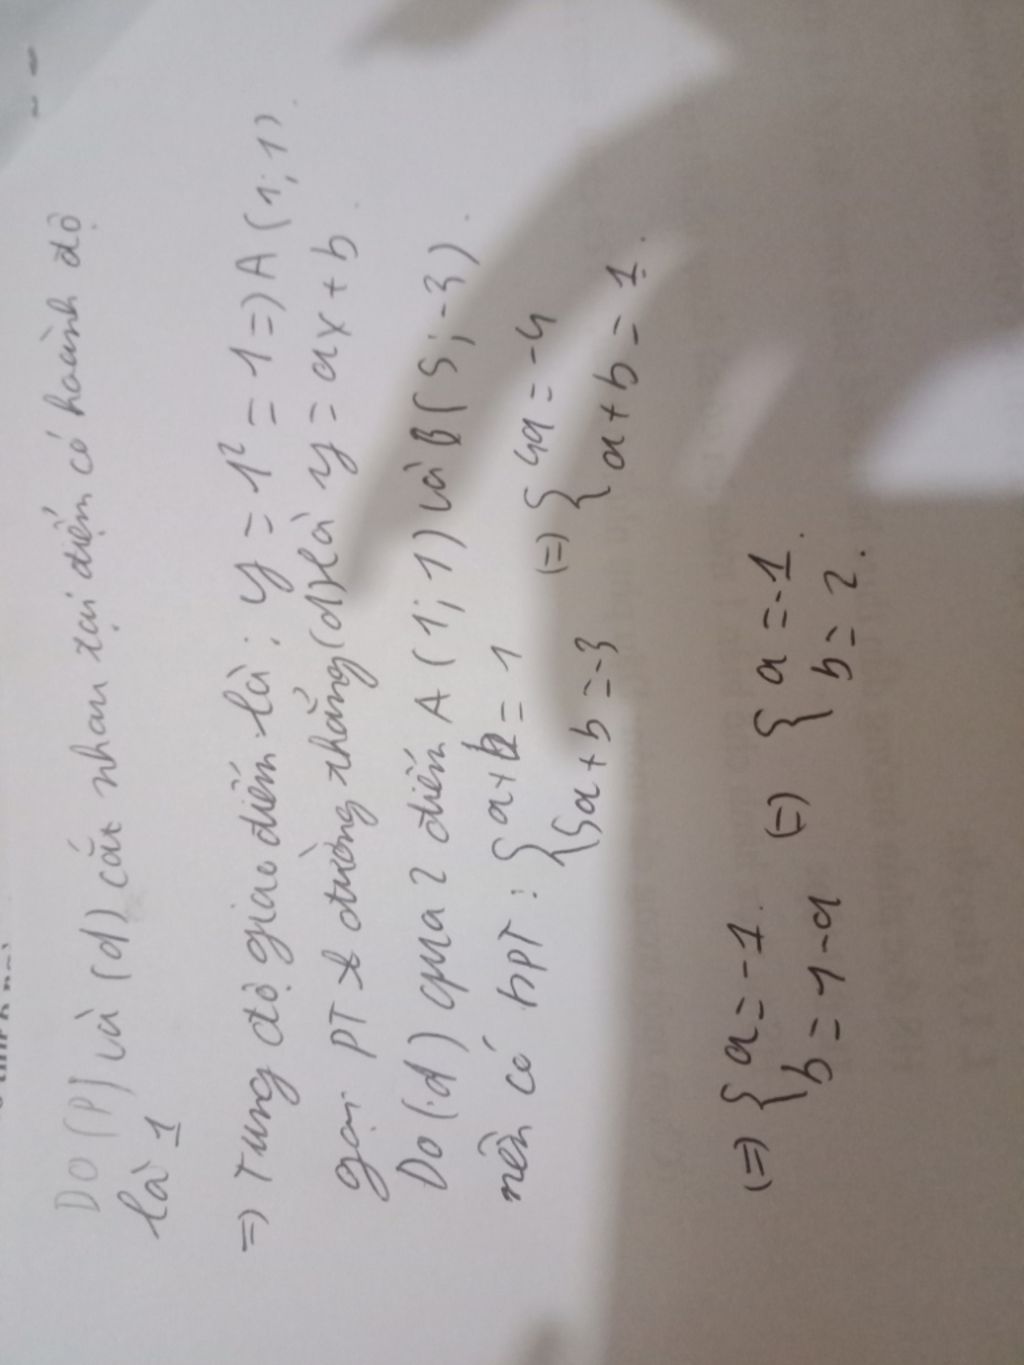 Do (P) và (d) cắt nhau tại điểm có hoành độ
là 1
=) Tung độ giao điểm là: y = 1² = 1 =) A (1; 1).
gọi PT đường thẳng (d) là y = ax + b.
Do (d) qua 2 điểm A (1; 1) và B (5; -3).
nên có hpt: { a + b = 1 (=) { 4a = -4
{ 5a + b = -3 { a + b = 1.
(=) { a = -1. (=) { a = -1.
{ b = 1 - a { b = 2.